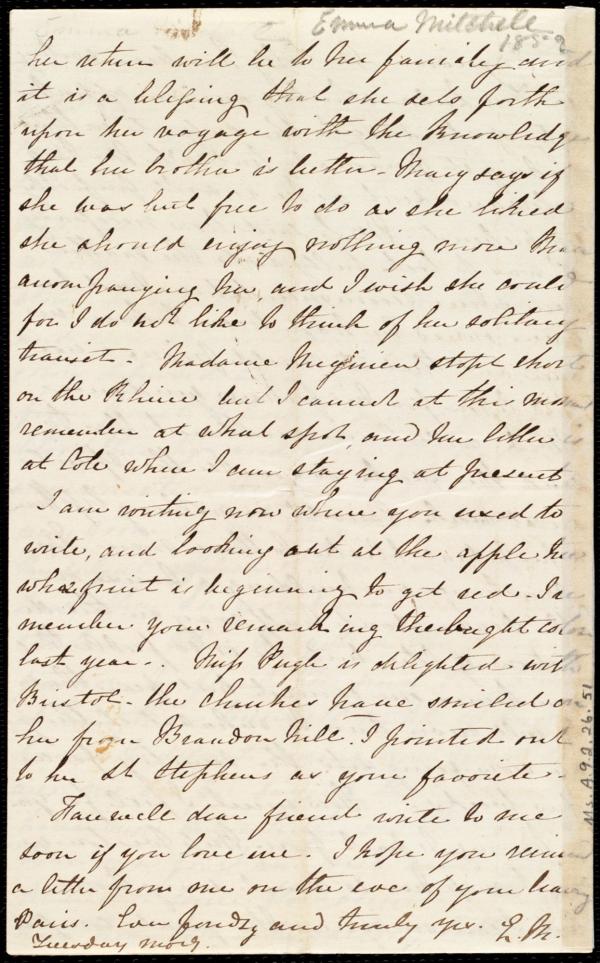 Emma Mitchell
1852
her return will be to her family and
it is a blessing that she sets forth
upon her voyage with the knowledge
that her brother is better - Mary says if
she was but free to do as she liked
she should enjoy nothing more than
accompanying her, and I wish she could
for I do not like to think of her solitary
transit - Madame stopt short
on the Rhine but I cannot at the moment
remember at what spot, and her letter is
at Cote where I am staying at present
I am writing now where you used to
write, and looking out at the apple tree
whose fruit is beginning to get red - I re
member your remarking the bright color
last year - . Miss Pugh is delighted with
Bristol - the churches have smiled on
her from Brandon hill - I pointed out
to her St Stephens as your favorite -
Farewell dear friend write to me
soon if you love me. I hope you
a letter from me on the eve of your leaving
Paris. Ever fondly and truly yrs. E M.
Tuesday morg.
Ms.A.9.2.26.51